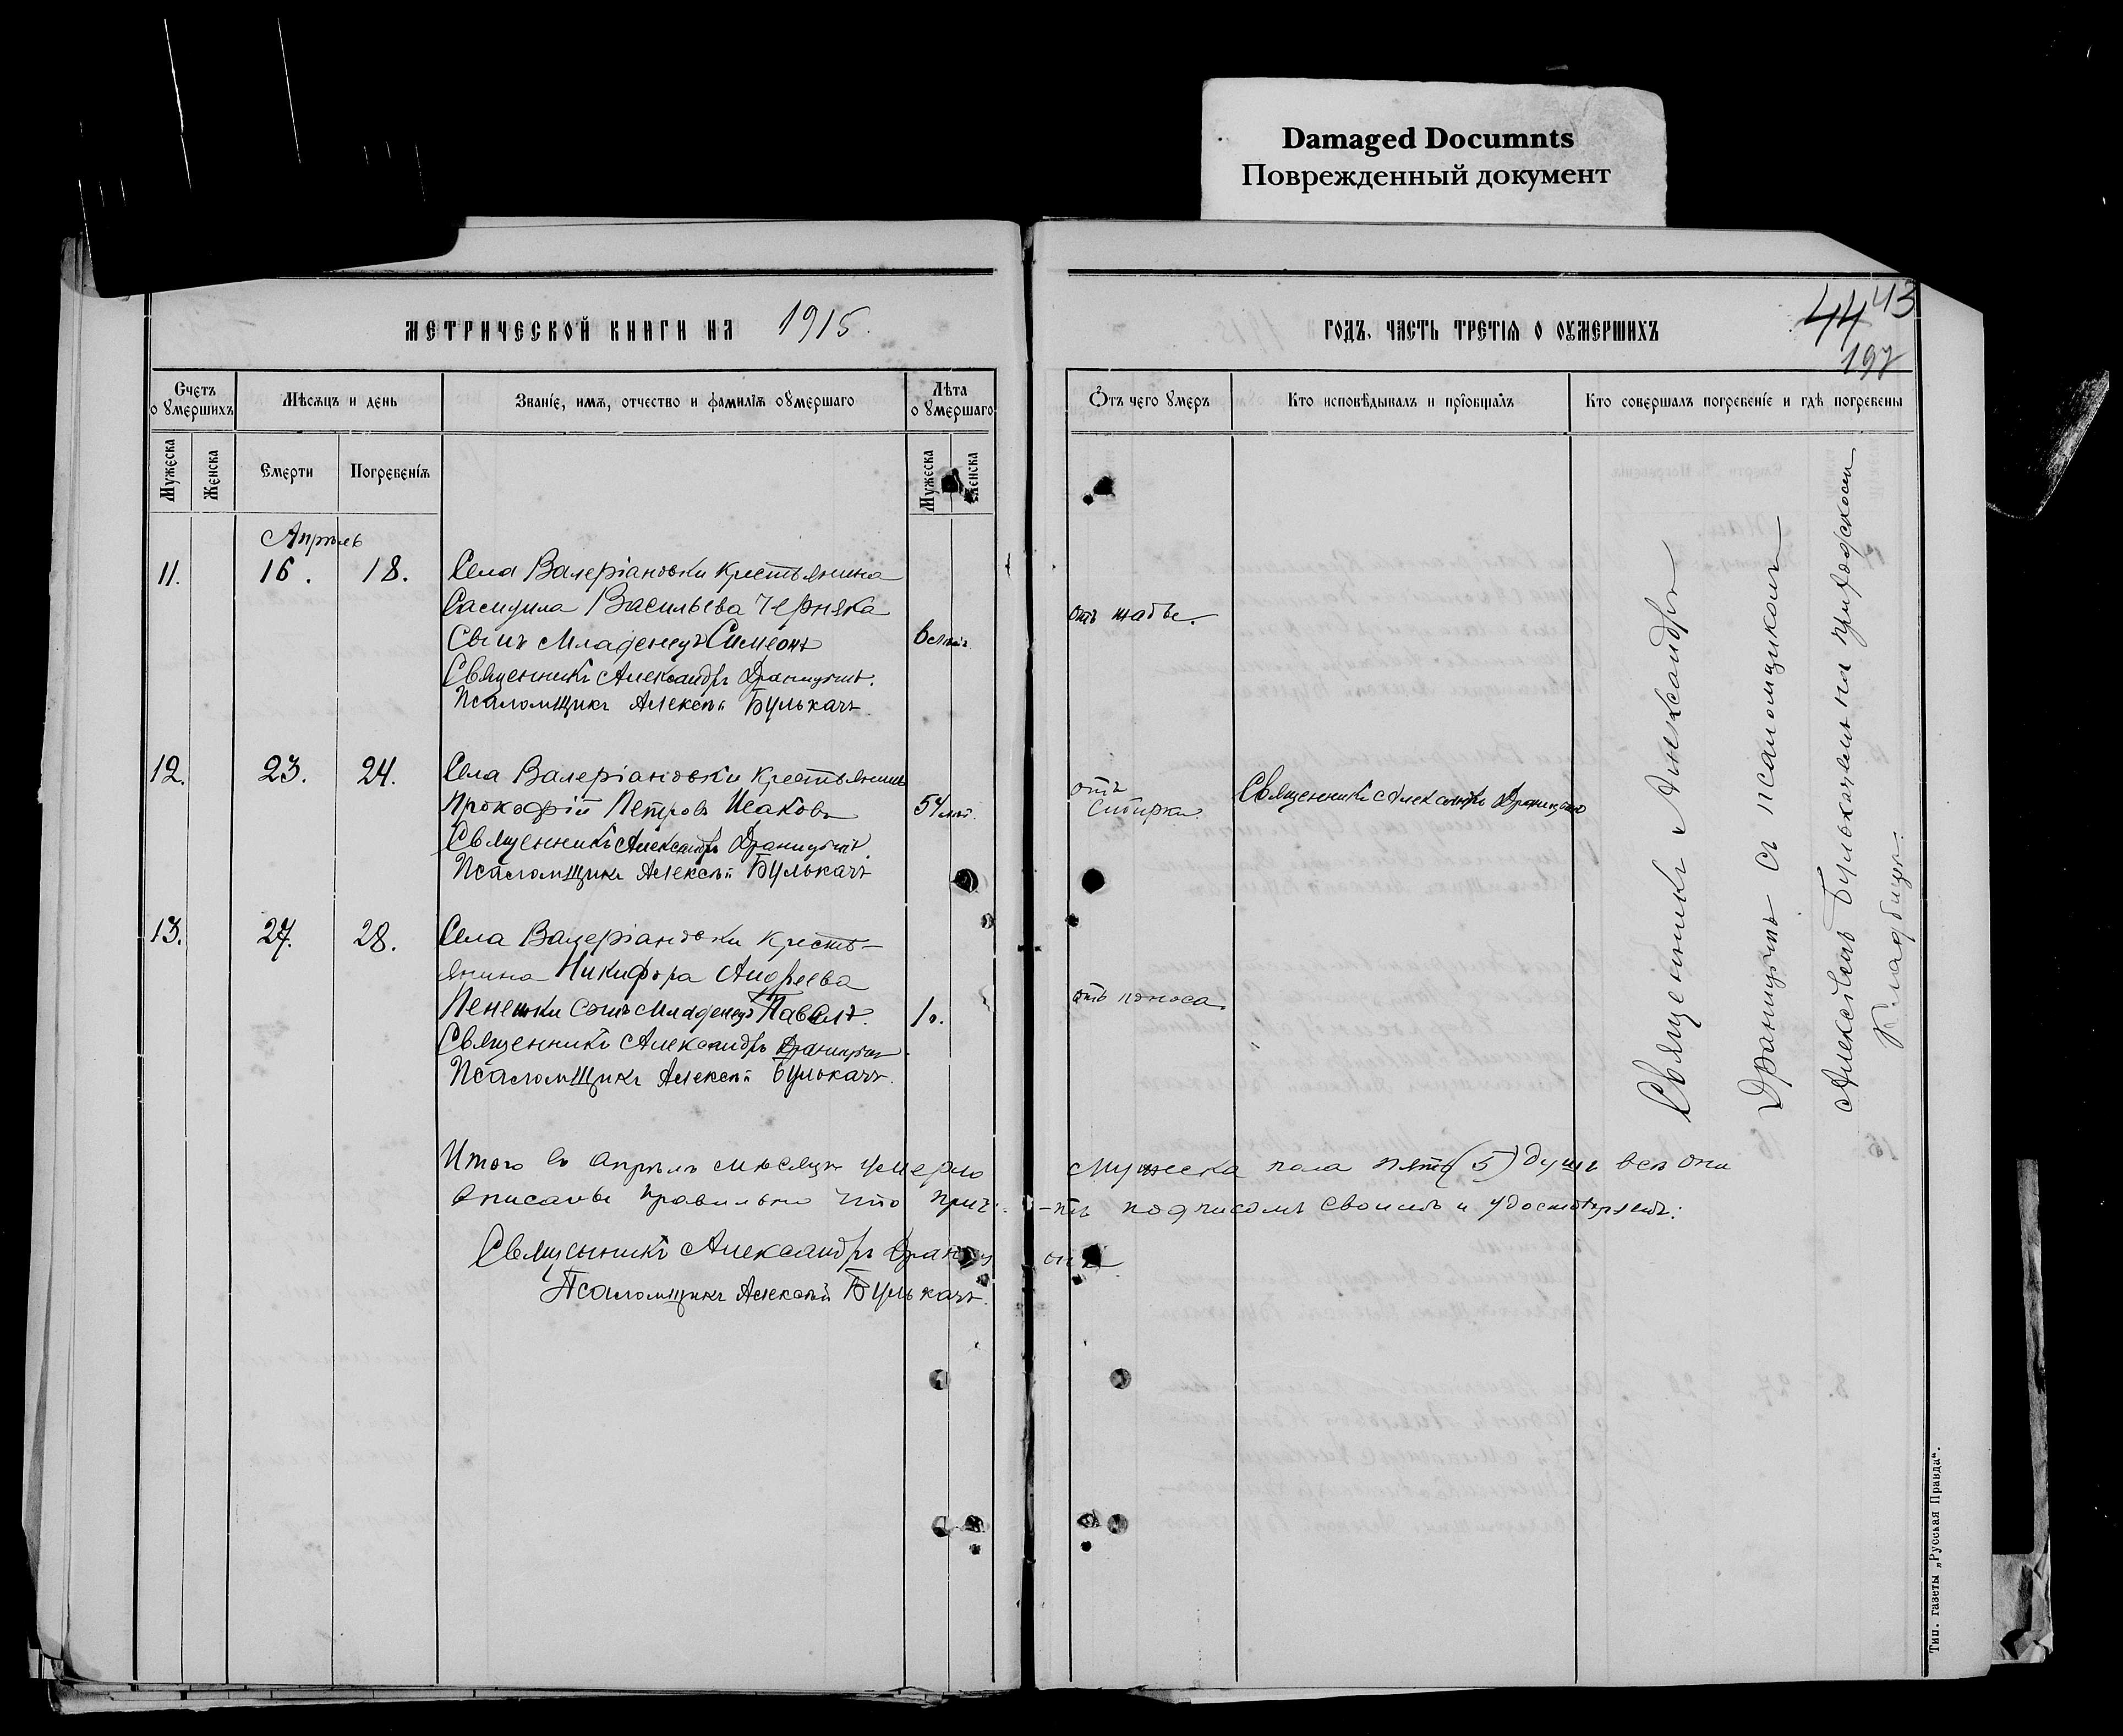 Damaged Documnts
Поврежденный документ
МЕТРИЧЕСКОЙ КНИГИ НА 1915.
ГОДЪ, ЧАСТЬ ТРЕТІЯ О ОУМЕРШИХЪ
44 43
197
Счетъ о умершихъ
Мѣсяцъ и день
Званіе, имя, отчество и фамилія оумершаго
Лѣта о умершаго
Отъ чего умеръ
Кто исповѣдывалъ и пріобщалъ
Кто совершалъ погребеніе и гдѣ погребены
Мужеска
Женска
Смерти
Погребенія
Мужеска
Женска
Апрѣль
11. 16. 18. Села Валеріановки крестьянина
Самуила Васильева Черняка
сынъ младенецъ Симеонъ
отъ жабы.
Священникъ Александръ Драницынъ.
Псаломщикъ Алексѣй Булькачъ
12. 23. 24. Села Валеріановки крестьянинъ
Прокофій Петровъ Исаковъ 54 лѣт.
отъ Сибирки
Священникъ Александръ Драницынъ
Священникъ Александръ Драницынъ.
Псаломщикъ Алексѣй Булькачъ
13. 27. 28. Села Валеріановки кресть-
янина Никифора Андреева
сынъ младенецъ Павелъ. 1 о.
отъ поноса.
Священникъ Александръ Драницынъ
Псаломщикъ Алексѣй Булькачъ.
Итого въ апрѣлѣ мѣсяцѣ умерло мужеска пола пять (5) душъ всѣ они
вписаны правильно что причтъ подписомъ своимъ и удостовѣряетъ:
Священникъ Александръ Драницынъ
Псаломщикъ Алексѣй Булькачъ.
Священникъ Александръ
Драницынъ съ псаломщикомъ
Алексѣемъ Булькачемъ на приходскомъ
кладбищѣ.
Тип. газеты „Русская Правда“.